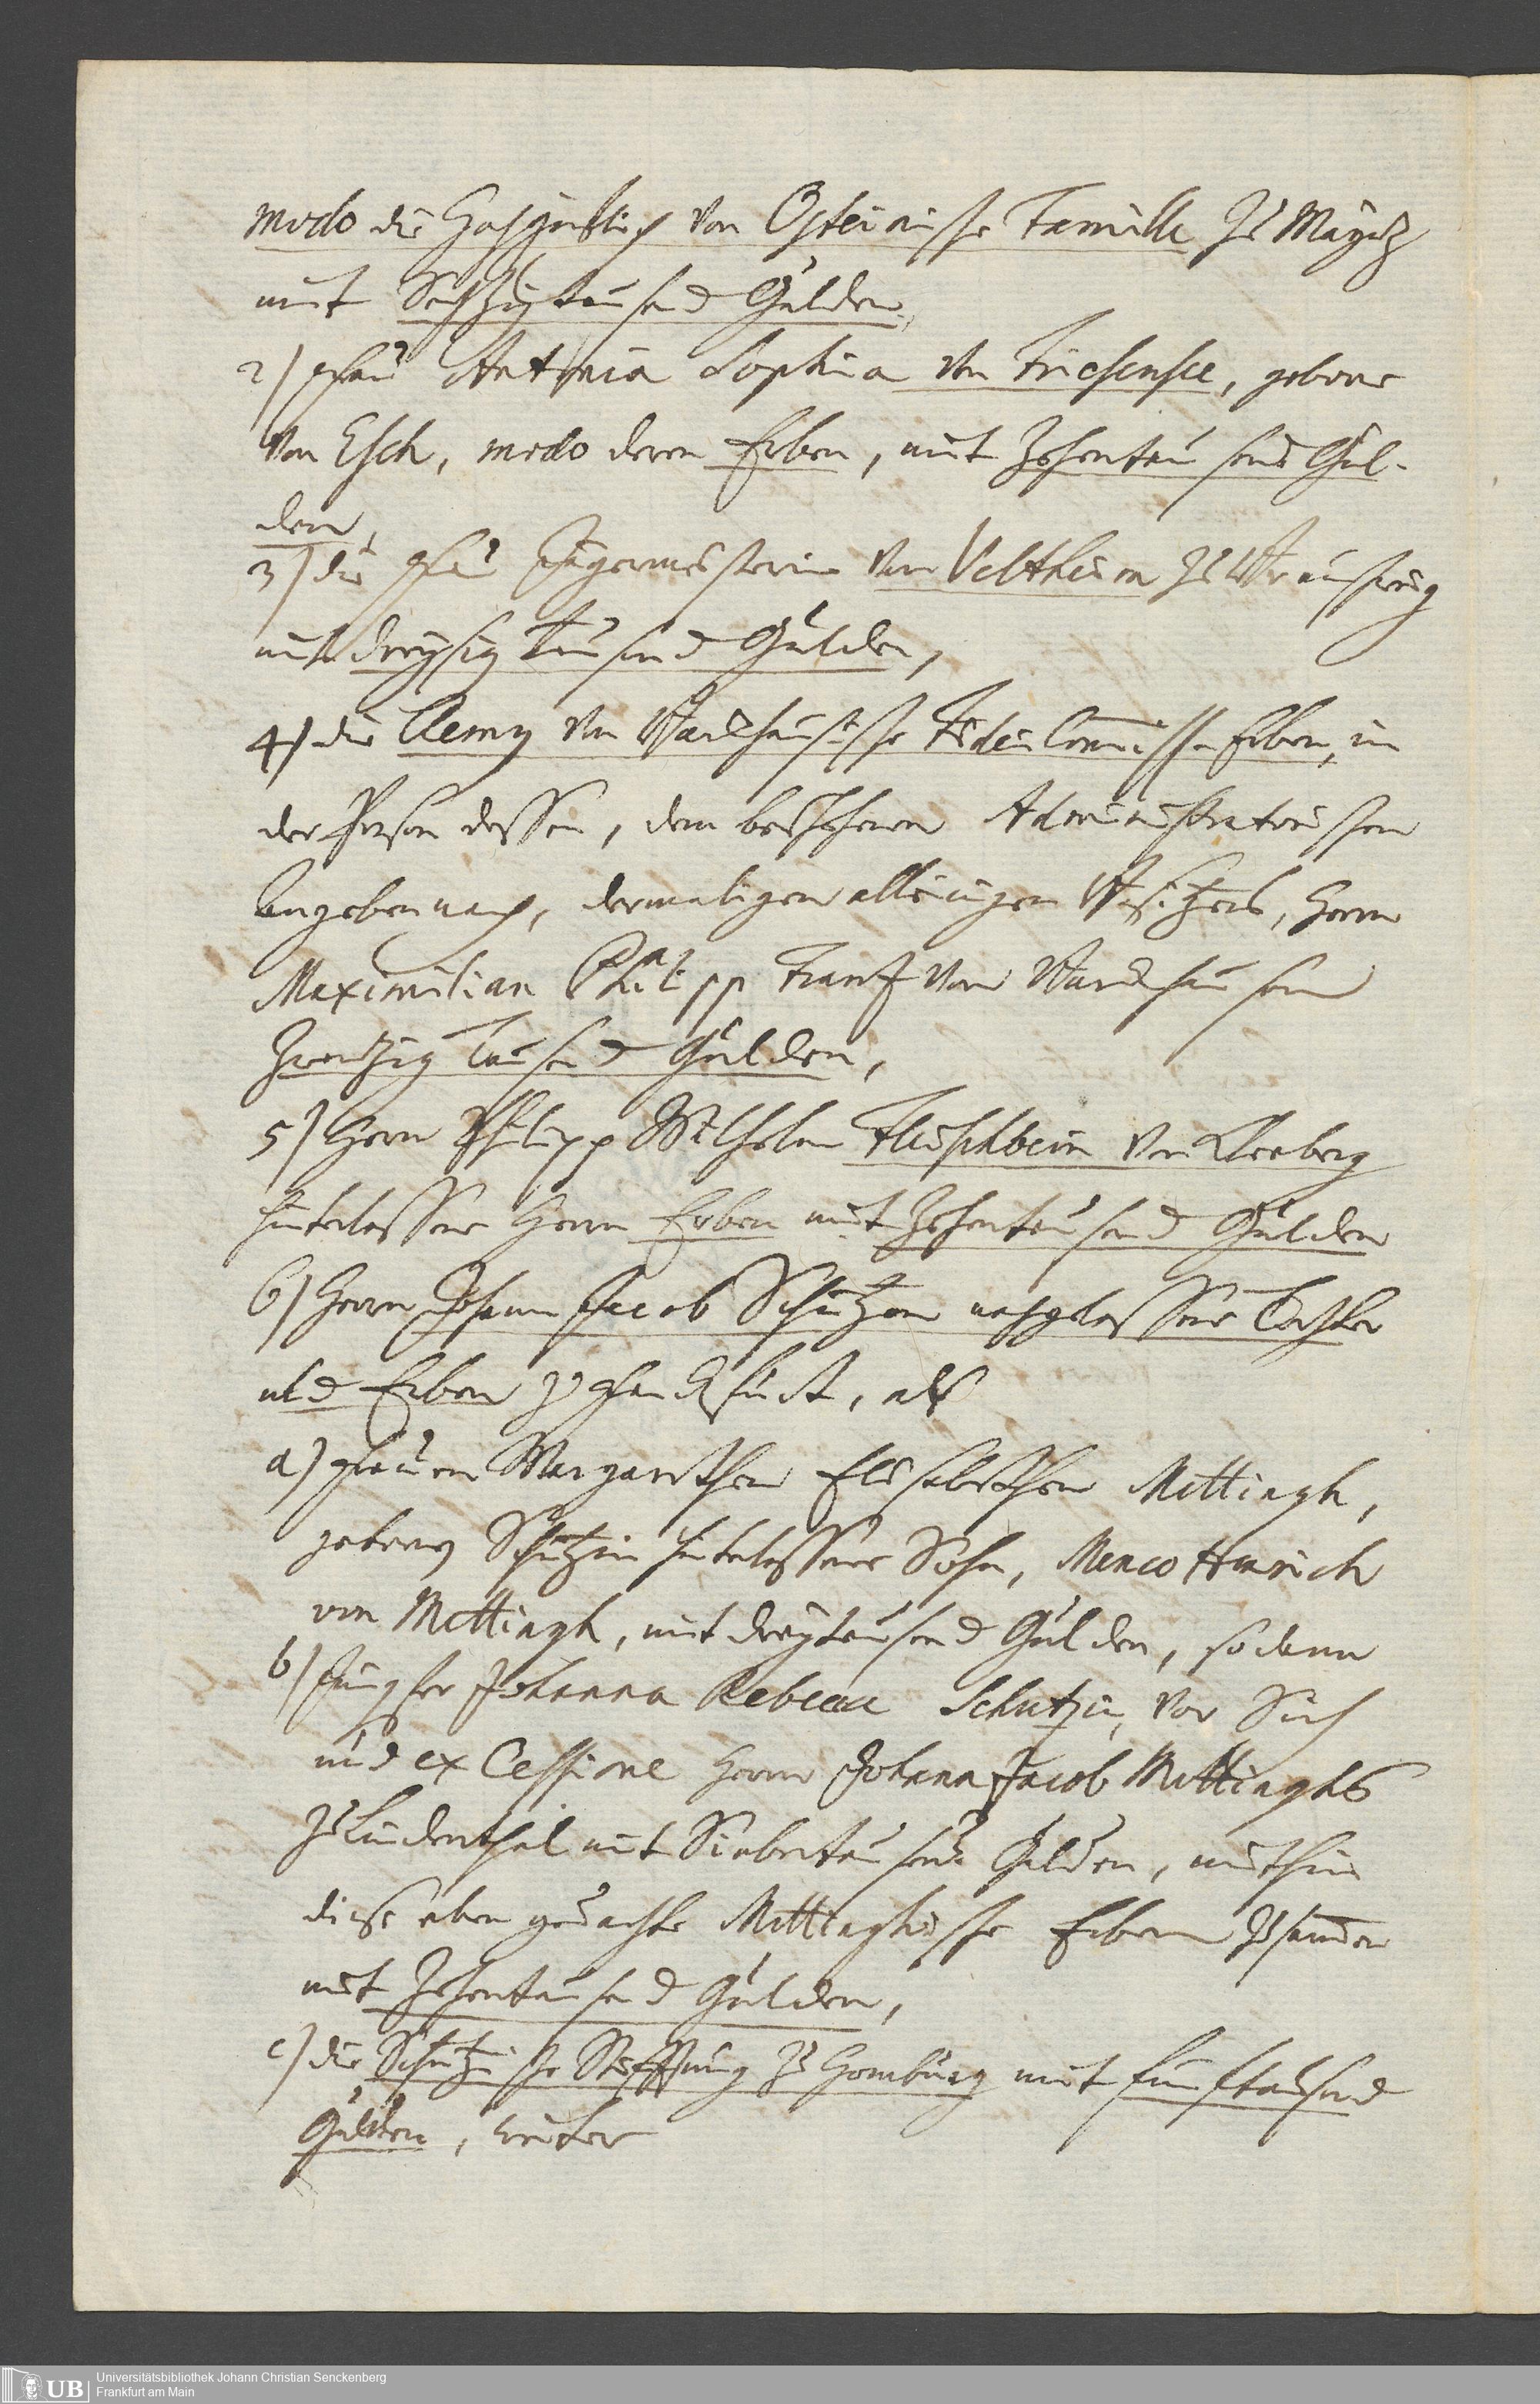 modo die Hochgräflich von Osteinische Famille zu Mayntz
mit Sechzigtausend Gulden,
2) Frau Antonia Sophia von Friesensee, geborne
von Esch, modo deren Erben, mit Zehentausend Gul-
den,
3) die Frau Jägermeisterin von Veltheim zu Braunschweig
mit dreysigtausend Gulden,
4) die Remy von Barckhausische Fidei Commiss Erben, in
der Person dessen, dem beschehenen Administratorischen
Angeben nach, dermaligen alleinigen Besitzers, Herrn
Maximilian Philipp Frantz von Barckhausen
Zwantzig Tausend Gulden,
5) Herrn Philipp Wilhelm Fleischbein von Kleeberg
hinterlassene Herrn Erben mit Zehentausend Gulden
6) Herrn Johann Jacob Schützen nachgelassene Tochter
und Erben zu Franckfurt, als
a) Frauen Margarethen Elisabethen Mettingh,
gebornen Schützin hinterlassener Sohn, Menco Heinrich
von Mettingh, mit dreytausend Gulden, sodann
b) Jungfer Johanna Rebecca Schutzin, vor Sich
und ex Cessione Herrn Johann Jacob Mettinghs
zu Lindenthal mit Siebentausend Gulden, mithin
diese eben gedachte Mettinghische Erben zusammen
mit Zehentausend Gulden,
c) die Schützische Stifftung zu Homburg mit fünftausend
Gulden, weiter
UB
Universitätsbibliothek Johann Christian Senckenberg
Frankfurt am Main